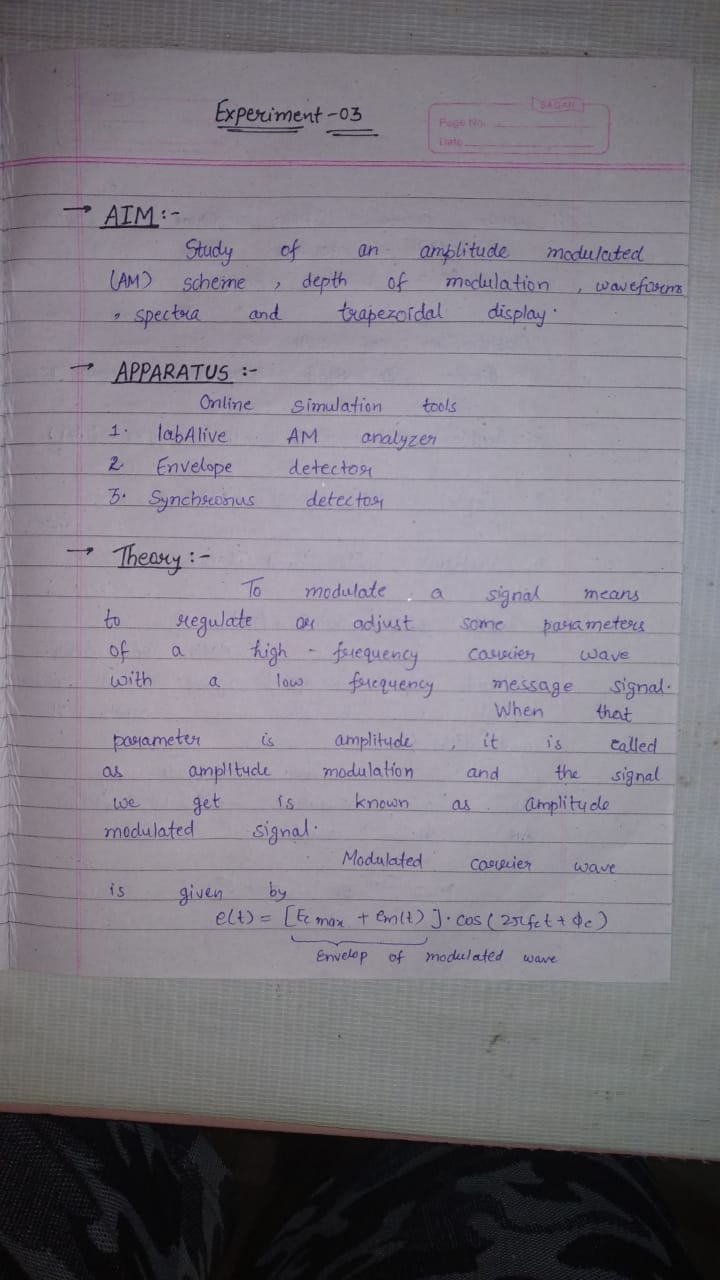 Experiment-03
SAGAR
Page No.
Date
→ AIM:-
Study of an amplitude modulated
(AM) scheme, depth of modulation, waveforms
, spectra and trapezoidal display.
→ APPARATUS :-
Online simulation tools
1. labAlive AM analyzer
2. Envelope detector
3. Synchronus detector
→ Theory:-
To modulate a signal means
to regulate or adjust some parameters
of a high-frequency carrier wave
with a low frequency message signal.
When that
parameter is amplitude, it is called
as amplitude modulation and the signal
we get is known as amplitude
modulated signal.
Modulated carrier wave
is given by
e(t) = [Ec max + em(t)]. cos(2πfct + Φc)
Envelop of modulated wave